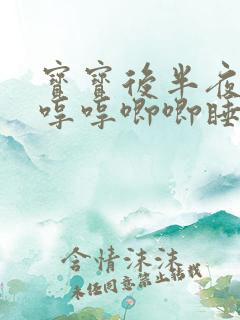 寶寶後半夜
哼哼唧唧睡
含情沫沫
未经同意禁止转载